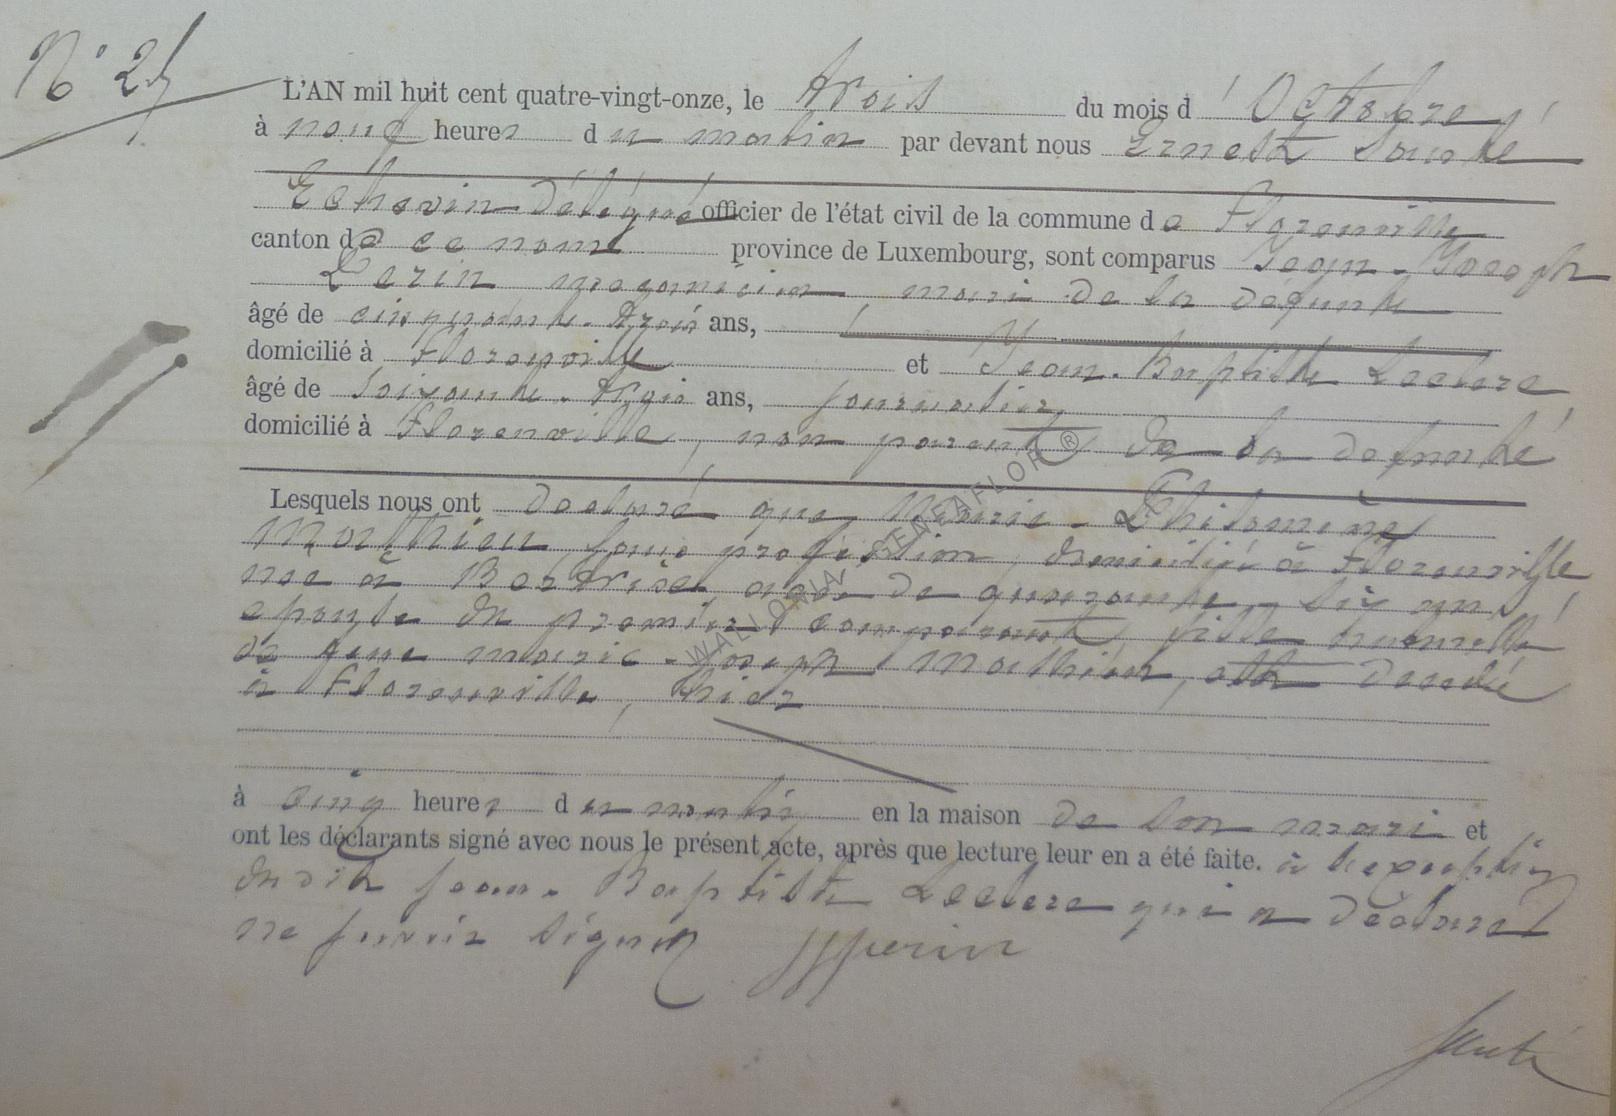 N° 25
L'AN mil huit cent quatre-vingt-onze, le trois du mois d'Octobre
à neuf heures du matin par devant nous Ernest
Echevin délégué officier de l'état civil de la commune de Florenville
canton de ce nom province de Luxembourg, sont comparus Jean-Joseph
Perin mari de la défunte
âgé de cinquante-trois ans,
domicilié à Florenville et Jean-Baptiste Leclerc
âgé de soixante-trois ans, journalier
domicilié à Florenville, non parent de la défunte
Lesquels nous ont déclaré que Marie-Philomène
Mathieu sans profession, domiciliée à Florenville
née à Bertrix agée de quarante-six ans
épouse du premier comparant fille naturelle
de feue Marie-Joseph Mathieu, est décédée
à Florenville, hier
à cinq heures du matin en la maison de son mari et
ont les déclarants signé avec nous le présent acte, après que lecture leur en a été faite. à l'exception
dudit Jean-Baptiste Leclerc qui a déclaré
ne savoir signer JJPerin
WALLONIA GENEAFLOR ®